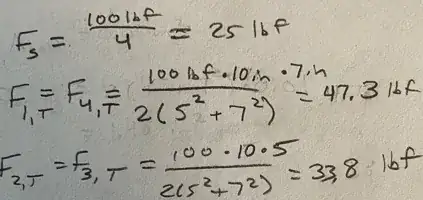 F_s = 100 lbf / 4 = 25 lbf
F_1,T = F_4,T = 100 lbf · 10 in · 7 in / 2(5² + 7²) = 47.3 lbf
F_2,T = F_3,T = 100 · 10 · 5 / 2(5² + 7²) = 33.8 lbf